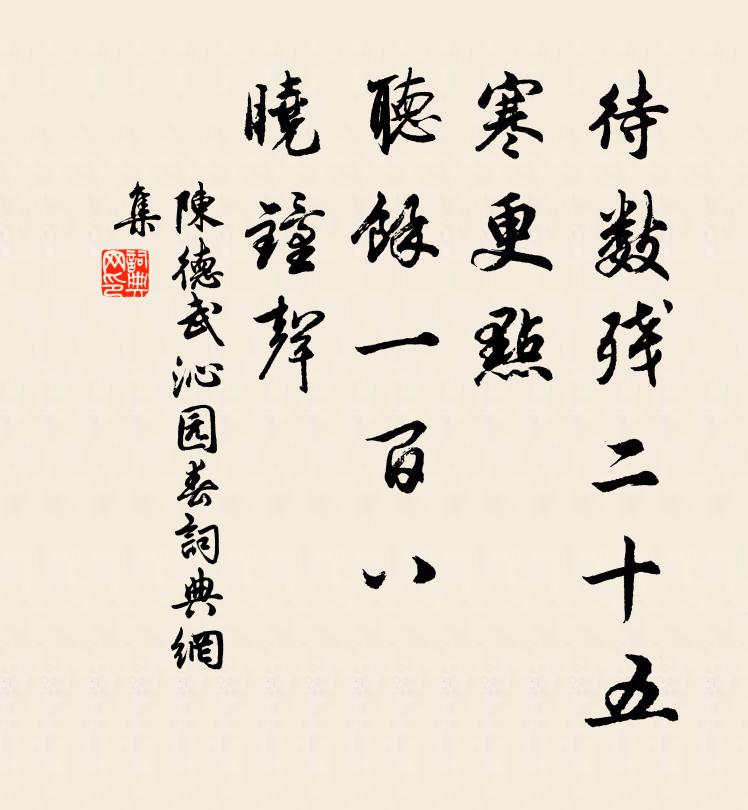 待数残二十五
寒更點
聽餘一百八
曉鐘聲
陳德武沁园春詞典網
集
詞典
网印